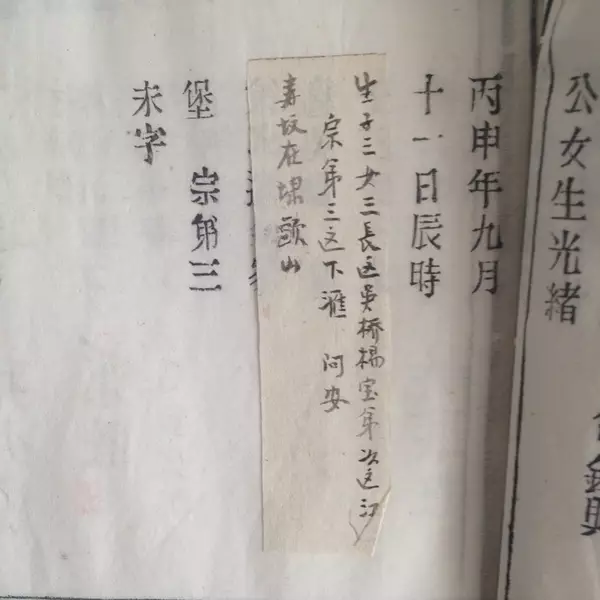 公女生光緒
丙申年九月
十一日辰時
生子三女三長适吳桥楊宝第次适江
宗第三适下滙 阿安
寿坟在埭頭山
堡 宗第三
未字